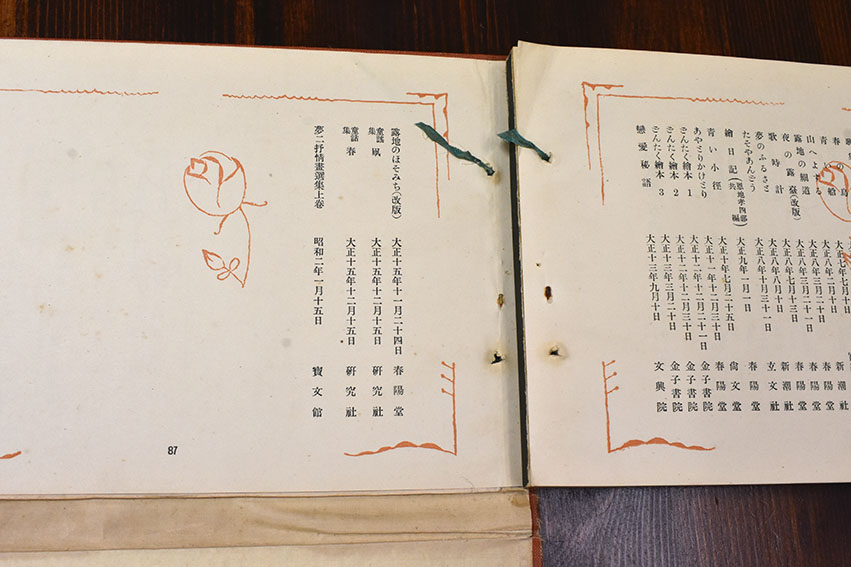 青い船 大正七年七月十
山へよする 大正八年二月十日 新潮社
露地の細道 大正八年三月二十日 春陽堂
夜の露臺(改版) 大正八年三月二日 春陽堂
歌時計 大正八年七月十三日 春陽堂
夢のふるさと 大正八年八月十日 新潮社
たそやあんどう 大正八年十月三十一日 玄文社
繪日記(恩地孝四郎共編) 大正九年一月一日 春陽堂
青い小徑 大正十年七月二十五日 尚文堂
あやとりかけとり 大正十一年十二月三十日 春陽堂
どんたく繪本 1 大正十二年十二月二十一日 金子書院
どんたく繪本 2 大正十二年十二月三十日 金子書院
どんたく繪本 3 大正十三年三月二十日 金子書院
戀愛秘語 大正十三年九月十日 文興院
露地のほそみち(改版) 大正十五年十一月二十四日 春陽堂
童謠集 凧 大正十五年十二月十五日 研究社
童話集 春 大正十五年十二月十五日 研究社
夢二抒情畫選集上卷 昭和二年一月十五日 寶文館
87